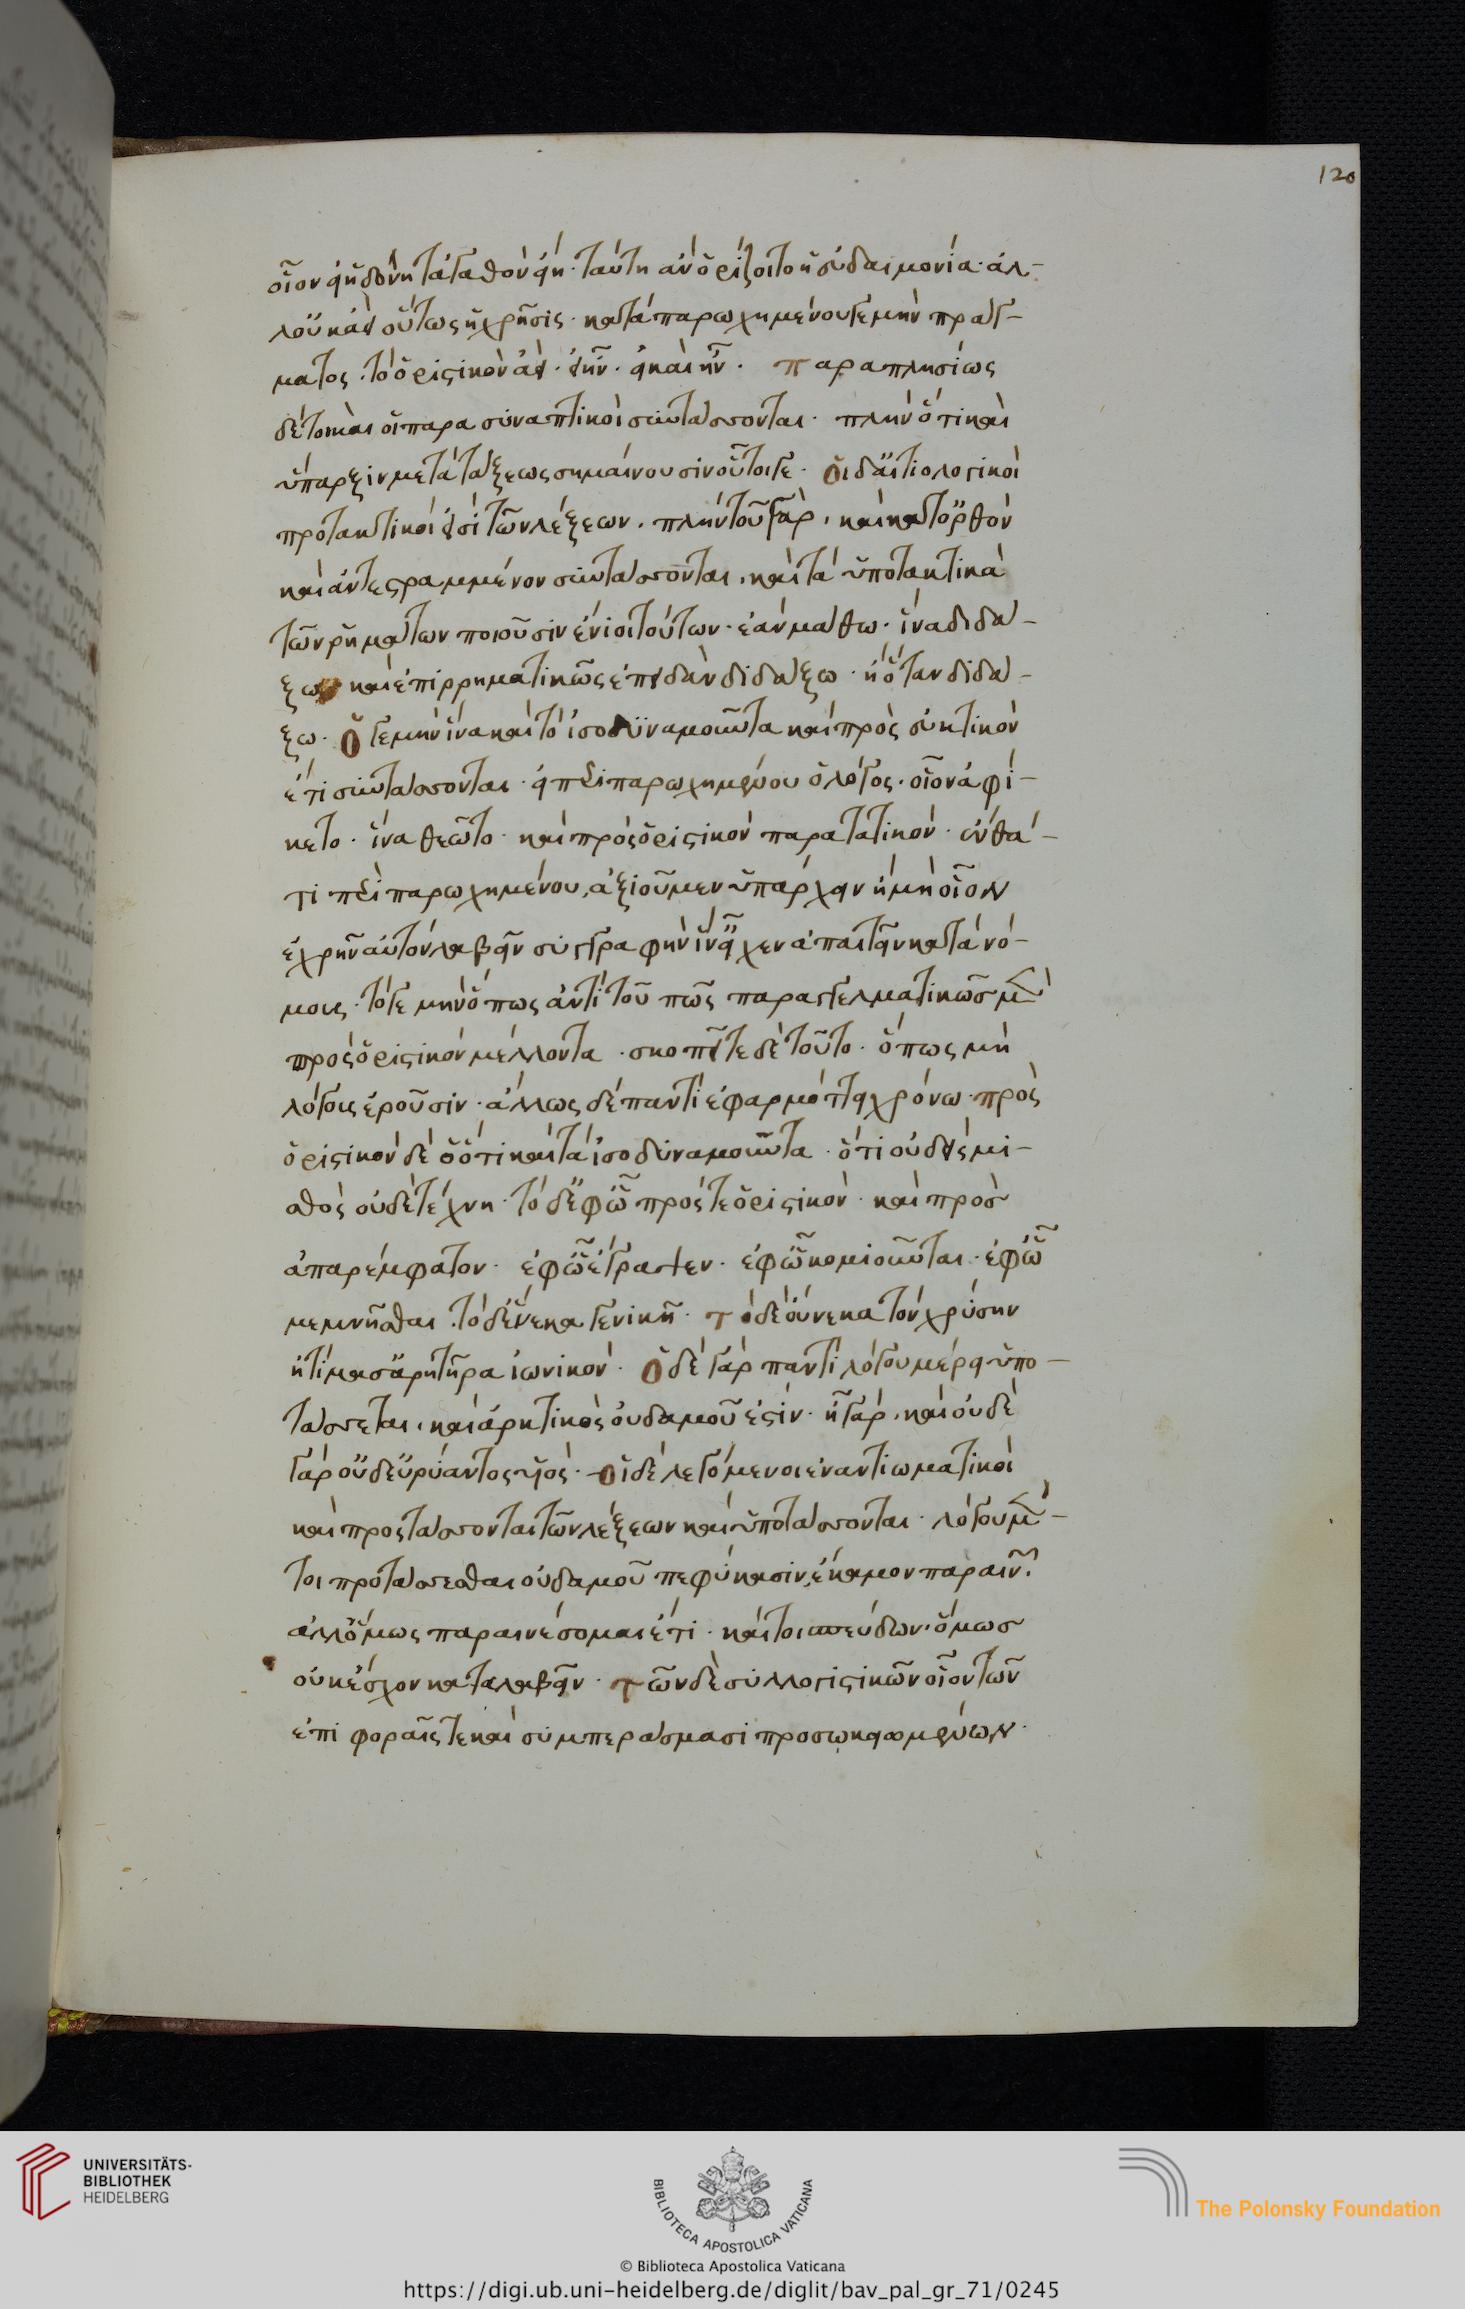 120
οἷον εἰ ἡδονὴ τἀγαθὸν εἴη· ταύτη ἂν ὁρίζοιτο ἡ εὐδαιμονία· ἀλ-
λ' οὐκ ἀεὶ οὕτως ἡ χρῆσις· κατὰ παρωχημένου γε μὴν πράγ-
ματος· τὸ ὁριστικὸν ἀεὶ· εἰ ἦν· εἰ καὶ ἦν· παραπλησίως
δέ τοι καὶ οἱ παρασυναπτικοὶ συντάσσονται· πλὴν ὅτι καὶ
ὕπαρξιν μετὰ τάξεως σημαίνουσιν οὗτοί γε· Οἱ δ' αἰτιολογικοὶ
προτακτικοί εἰσὶ τῶν λέξεων· πλὴν τοῦ γάρ· καὶ κατ' ὀρθὸν
καὶ ἀντεστραμμένον συντάσσονται· καὶ τὰ ὑποτακτικὰ
τῶν ῥημάτων ποιοῦσιν ἔνιοι τούτων· ἐὰν μάθω· ἵνα διδά-
ξω καὶ ἐπιρρηματικῶς ἐπειδὰν διδάξω· ἢ ὅταν διδά-
ξω· Ὁ γε μὴν ἵνα καὶ τὸ ἰσοδυναμοῦντα καὶ πρὸς εὐκτικὸν
ἔτι συντάσσονται· εἰ περὶ παρωχημένου ὁ λόγος· οἷον ἀφί-
κετο· ἵνα θεῷτο· καὶ πρὸς ὁριστικὸν παρατατικόν· ἔνθά
τι περὶ παρωχημένου ἀξιοῦμεν ὑπάρχειν ἢ μὴ οἷον
ἐχρῆν αὐτὸν λαβεῖν συγγραφὴν ἵν' εἶχεν ἀπαιτεῖν κατὰ νό-
μους· τό γε μὴν ὅπως ἀντὶ τοῦ πῶς παραγγελματικῶς μὲν
πρὸς ὁριστικὸν μέλλοντα· σκοπεῖτε δὲ τοῦτο· ὅπως μὴ
λόγους ἐροῦσιν· ἄλλως δὲ παντὶ ἐφαρμόττει χρόνω· πρὸς
ὁριστικὸν δὲ ὁ ὅτι καὶ τὰ ἰσοδυναμοῦντα· ὅτι οὐδεὶς μι-
σθὸς οὐδὲ τέχνη· τὸ δ' ἐφ' ὧ πρός τε ὁριστικὸν· καὶ πρὸς
ἀπαρέμφατον· ἐφ' ὧ ἔγραψεν· ἐφ' ὧ κομιοῦνται· ἐφ' ὧ
μεμνῆσθαι· τὸ δ' ἕνεκα γενικῆ· τὸ δὲ οὕνεκα τὸν χρύσην
ἠτίμασ' ἀρητῆρα ἰωνικόν· Ὁ δὲ γάρ παντὶ λόγου μέρει ὑπο-
τάσσεται· καὶ ἀρκτικὸς οὐδαμοῦ ἐστίν· ἦ γάρ· καὶ οὐδὲ
γὰρ οὐδὲ δρύαντος υἱός· Οἱ δὲ λεγόμενοι ἐναντιωματικοὶ
καὶ προστάσσονται τῶν λέξεων καὶ ὑποτάσσονται· λόγου μέν-
τοι προτάσσεσθαι οὐδαμοῦ πεφύκασιν, ἔκαμον παραινῶν
ἀλλ' ὅμως παραινέσομαι ἔτι· καίτοι σπεύδων· ὅμως
οὐκ ἔσχον καταλαβεῖν· τῶν δὲ συλλογιστικῶν οἷον τῶν
ἐπιφοραῖς τε καὶ συμπεράσμασι προσωκειωμένων·
UNIVERSITÄTS-
BIBLIOTHEK
HEIDELBERG
BIBLIOTECA APOSTOLICA VATICANA
The Polonsky Foundation
© Biblioteca Apostolica Vaticana
https://digi.ub.uni-heidelberg.de/diglit/bav_pal_gr_71/0245